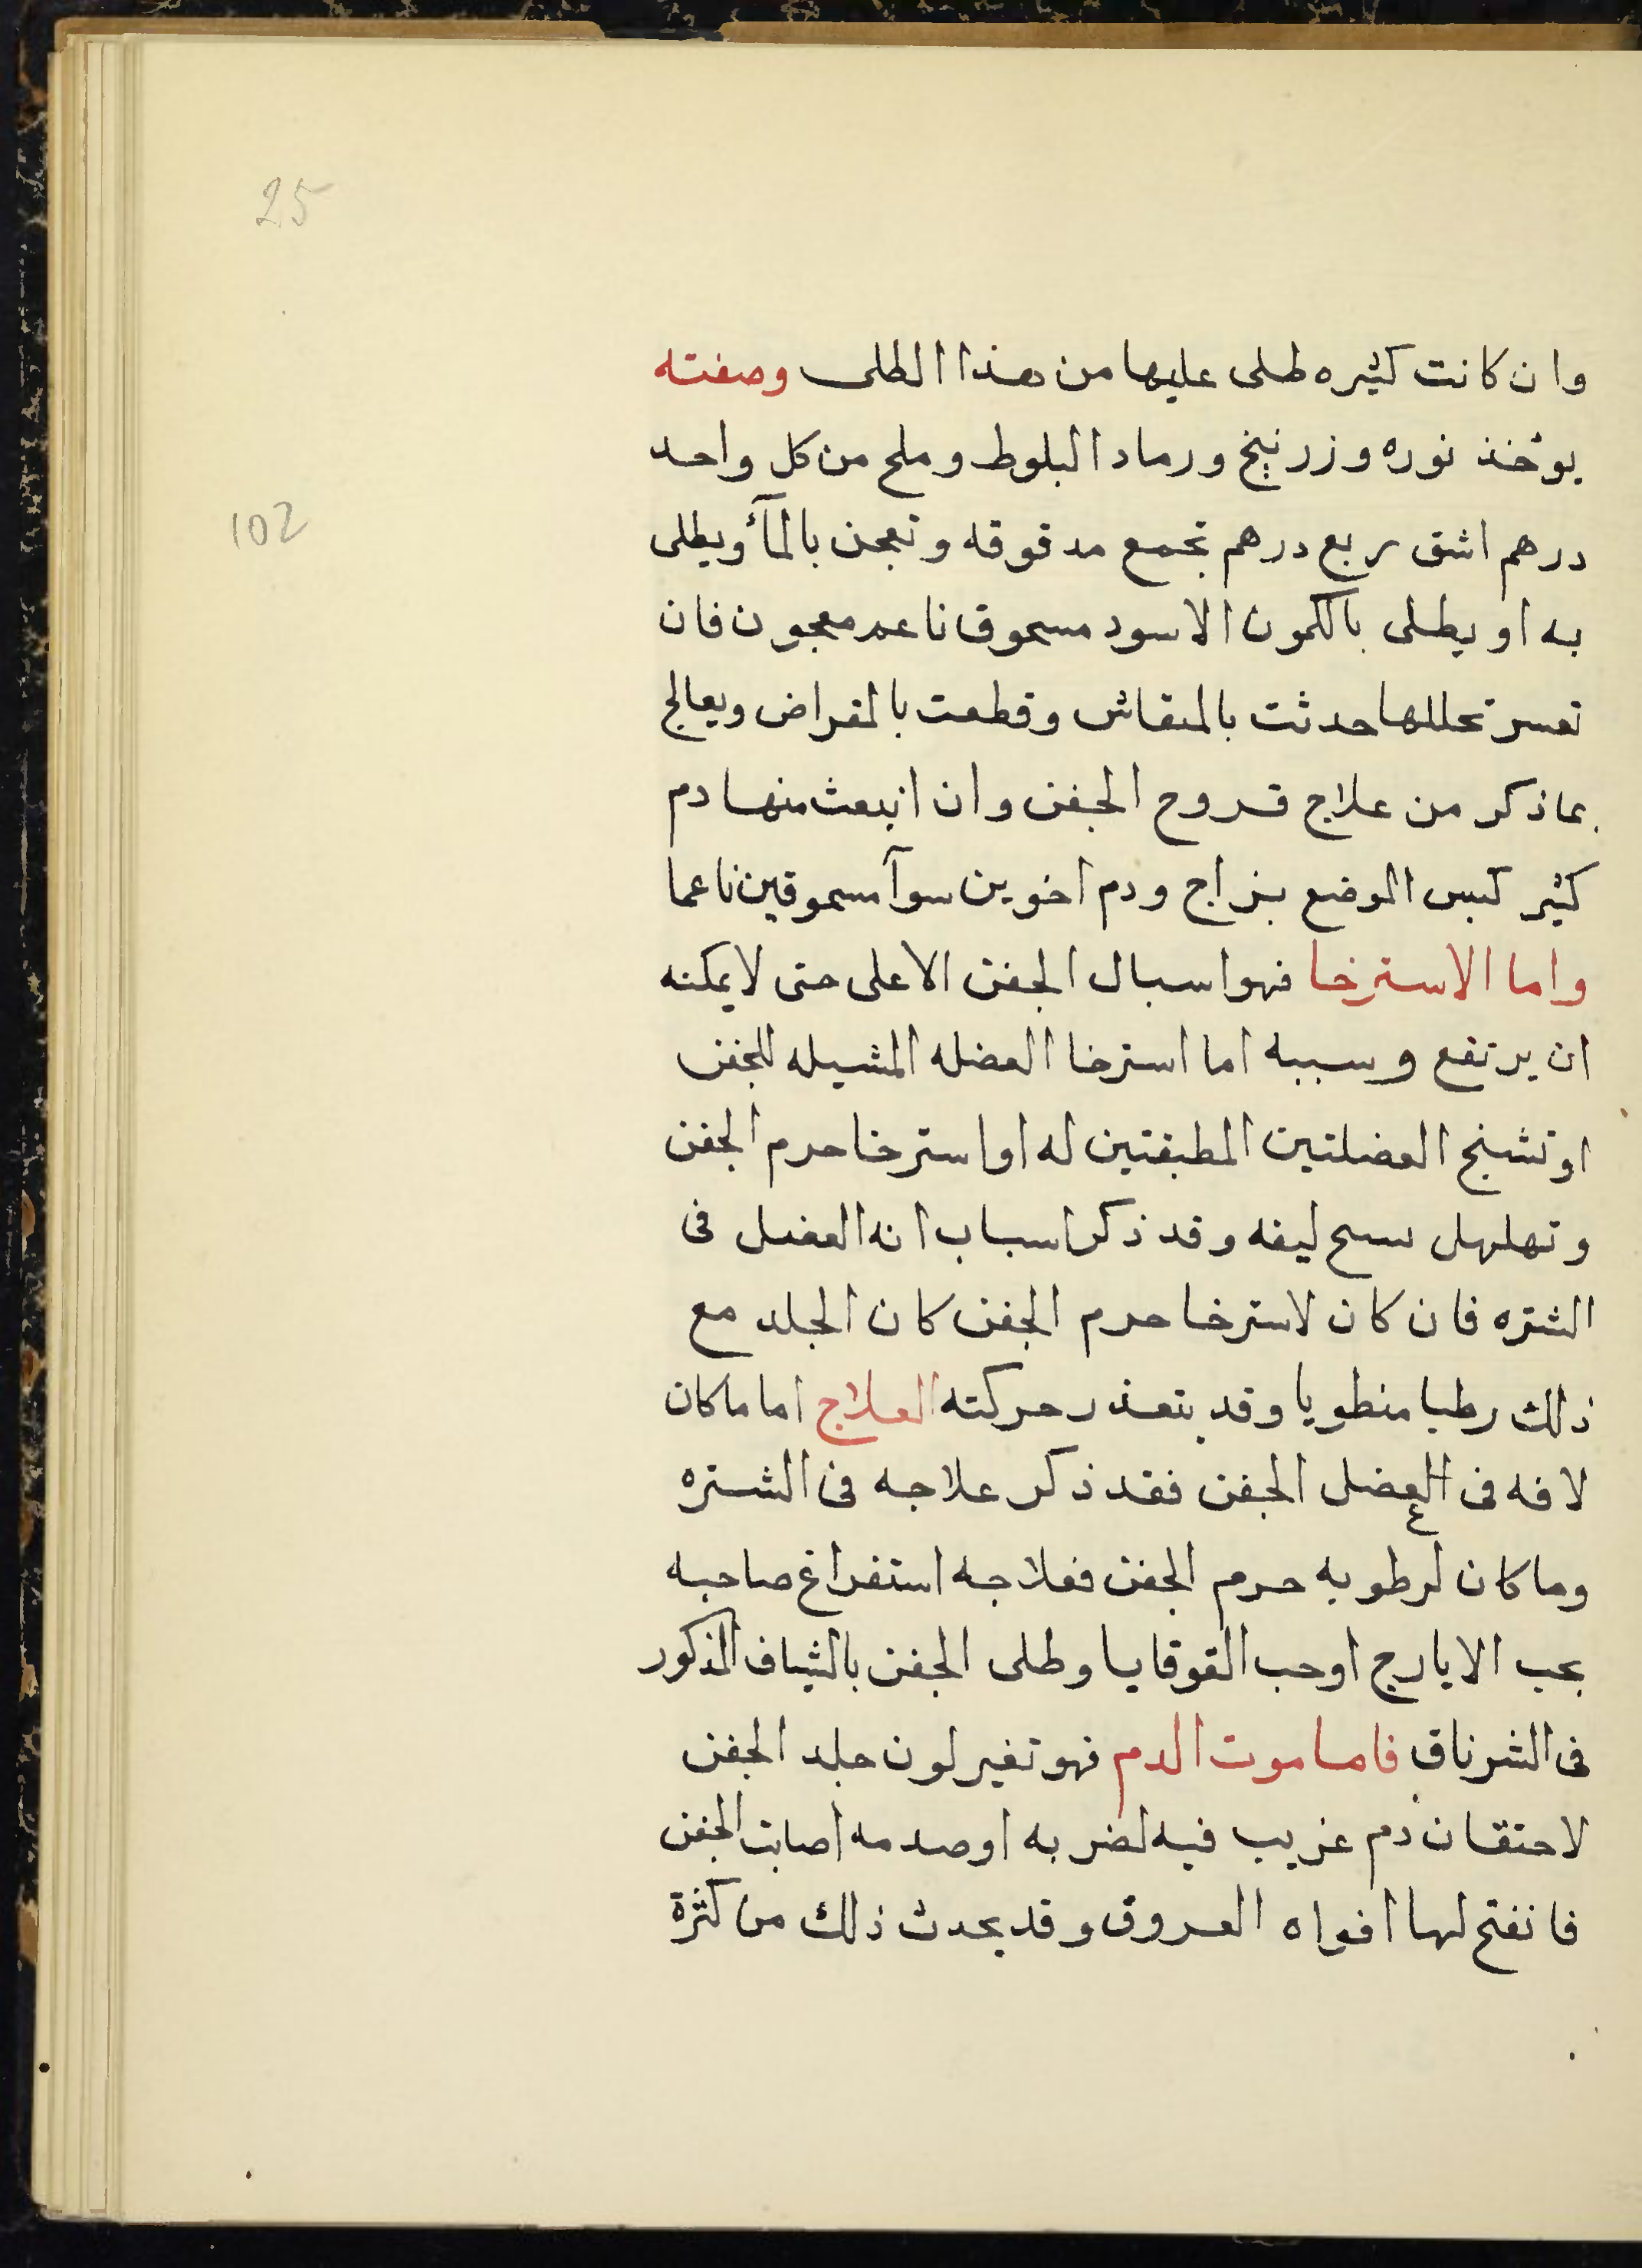 25
وان كانت كثيره طلى عليها من هذا الطلى وصفته
يوخذ نوره وزرنيخ ورماد البلوط وملح من كل واحد
102
درهم اشق ربع درهم تجمع مدقوقه وتعجن بالمآ ويطلى
به او يطلى بالكمون الاسود مسحوق ناعم معجون فان
تعسر تحللها حدثت بالمنقاش وقطعت بالمقراض ويعالج
بما ذكر من علاج قروح الجفن وان انبعث منها دم
كثير كبس الموضع بزاج ودم اخوين سوآ مسحوقين ناعما
واما الاسترخا فهو اسبال الجفن الاعلى حتى لا يمكنه
ان يرتفع وسببه اما استرخا العضله المشيله للجفن
او تشنج العضلتين المطبقتين له او استرخا حرم الجفن
وتهلهل سبح ليفه وقد ذكر اسباب انه العضل فى
الشتره فان كان لاسترخا حرم الجفن كان الجلد مع
ذلك رطبا منطويا وقد يتعذر حركته العلاج اما ما كان
لافه فى العضل الجفن فقد ذكر علاجه فى الشتره
وما كان لرطوبه حرم الجفن فعلاجه استفراغ صاحبه
بحب الايارج او حب القوقايا وطلى الجفن بالشياف المذكور
فى الشرناق فاما موت الدم فهو تغير لون جلد الجفن
لاحتقان دم غريب فيه لضربه او صدمه اصابت الجفن
فانفتح لها افواه العروق وقد يحدث ذلك من كثرة